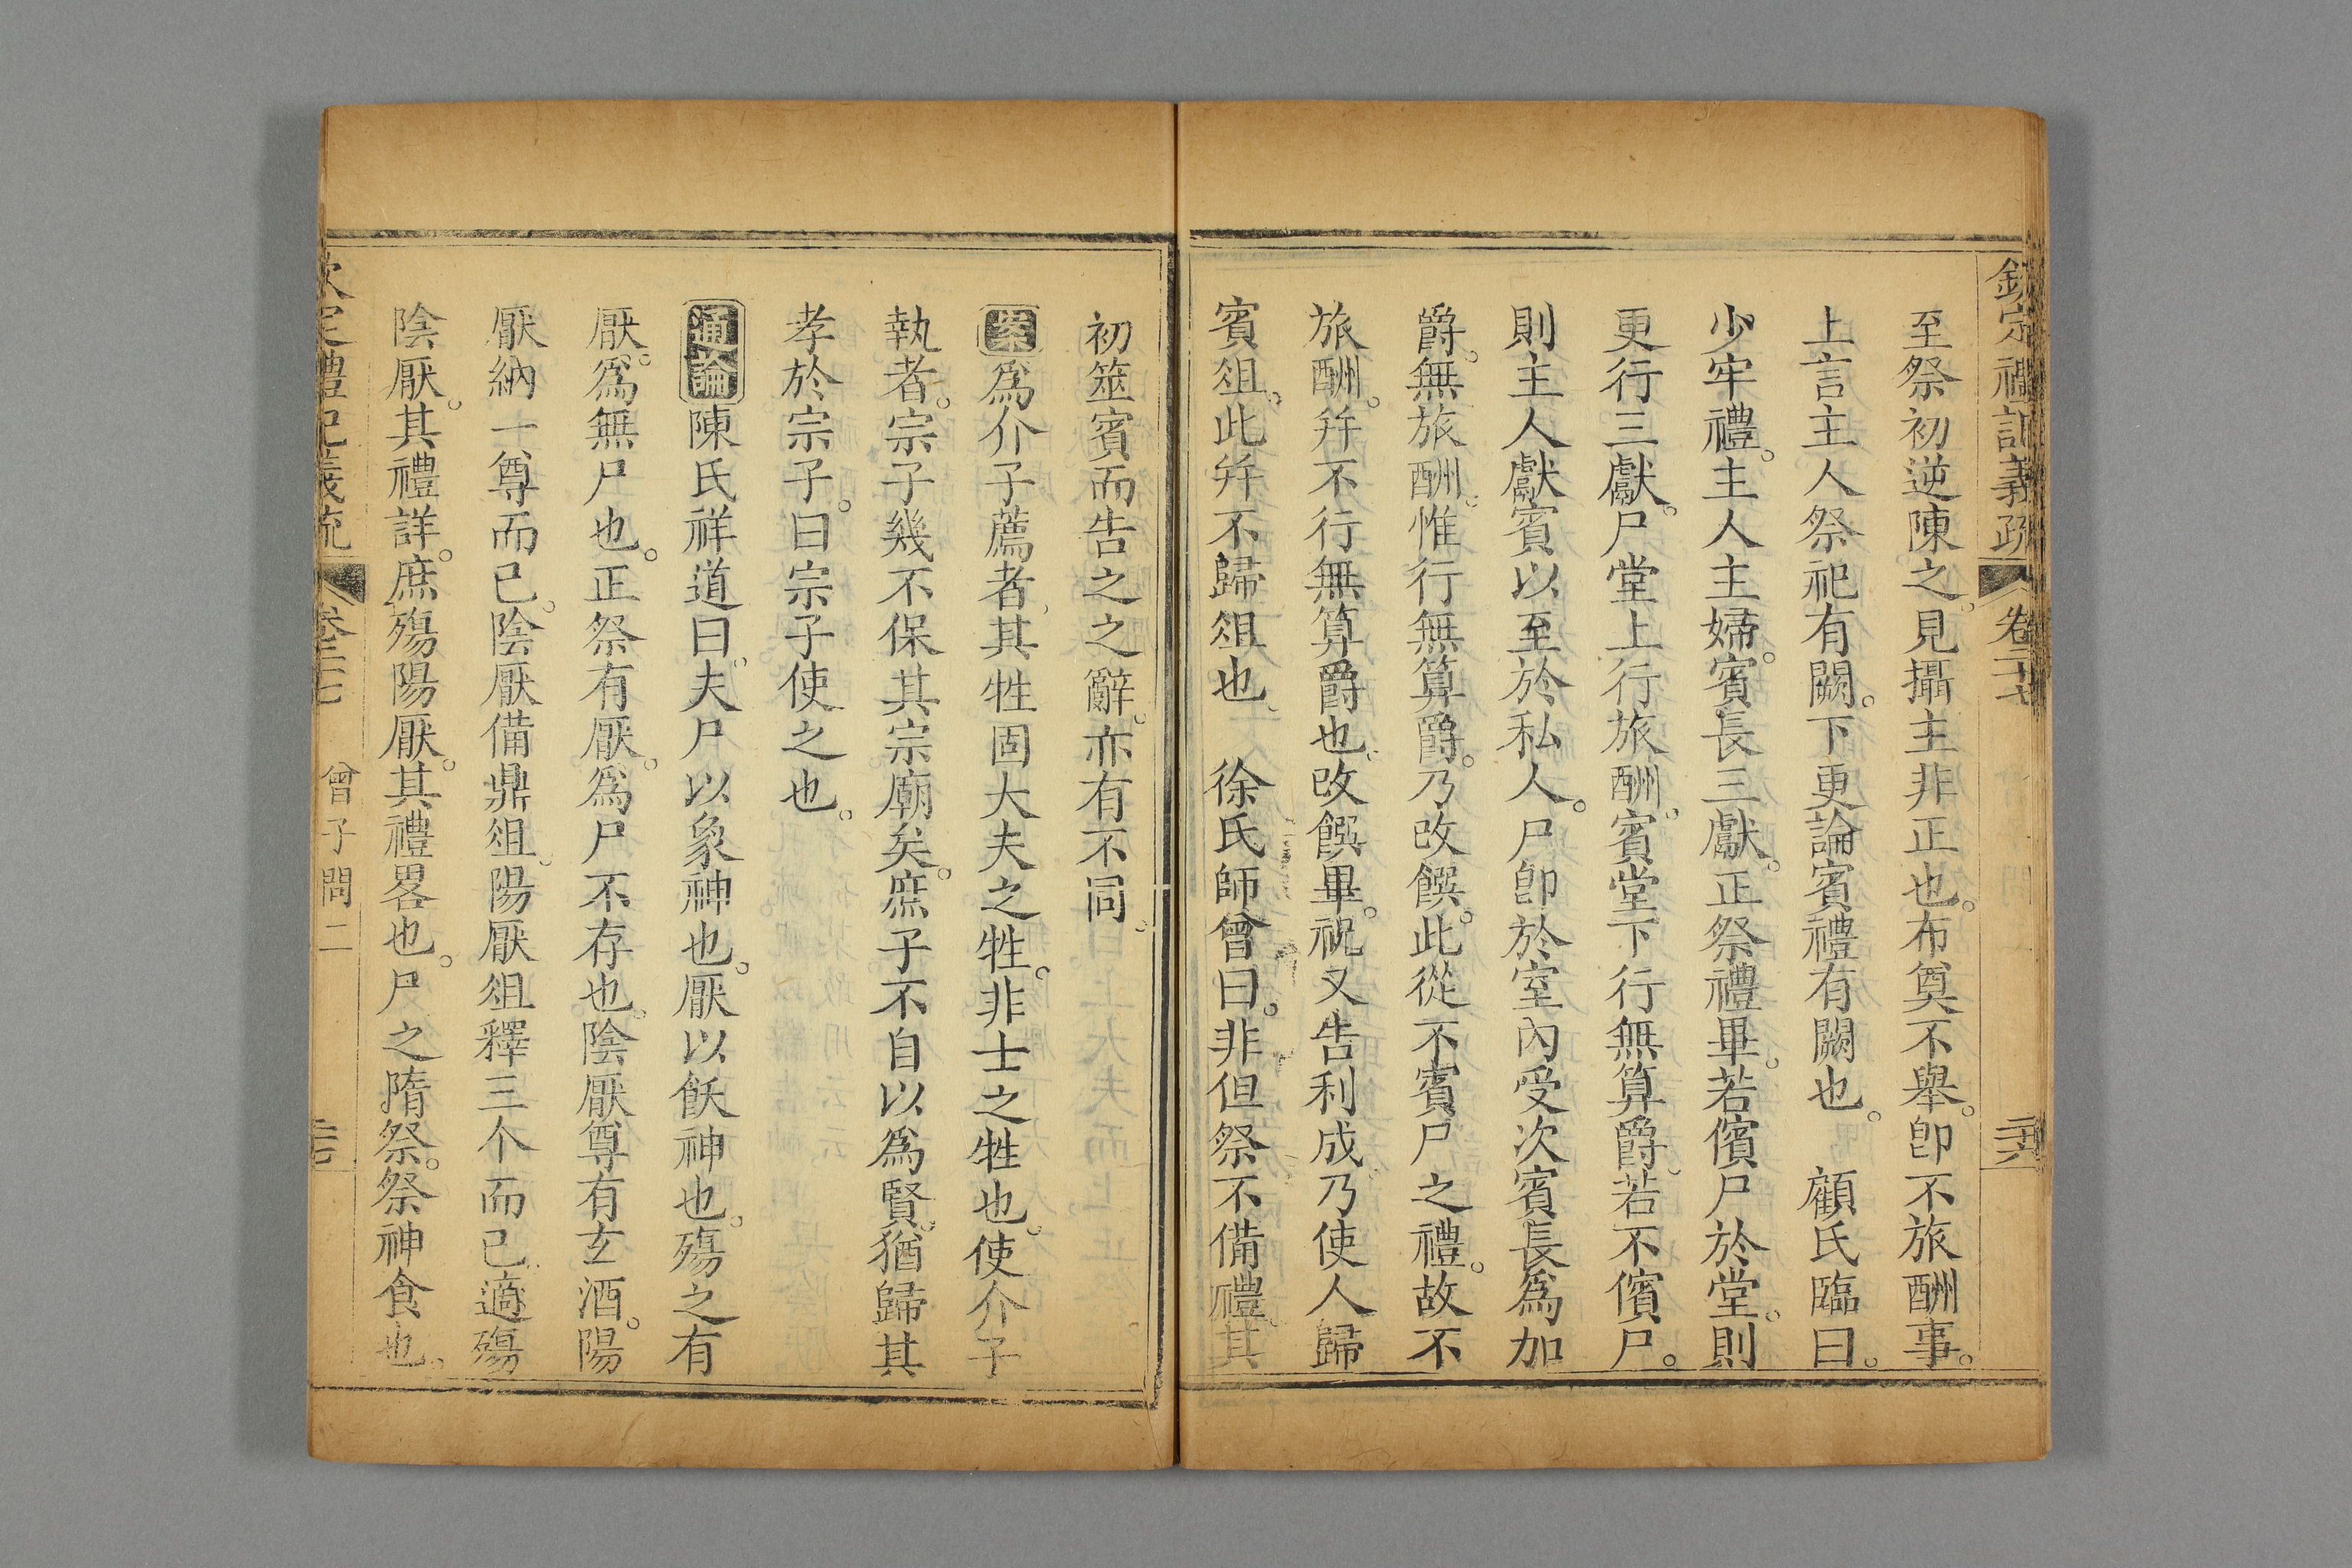 欽定禮記義疏 卷二十七 二十六
至祭初逆陳之見攝主非正也。布奠不舉。卽不旅酬事。
上言主人祭祀有闕。下更論賓禮有闕也。 顧氏臨曰。
少牢禮。主人主婦。賓長三獻。正祭禮畢。若儐尸於堂。則
更行三獻。尸堂上行旅酬。賓堂下行無算爵。若不儐尸。
則主人獻賓以至於私人。尸卽於室內受次賓長爲加
爵。無旅酬。惟行無算爵。乃改饌。此從不賓尸之禮。故不
旅酬。幷不行無算爵也。改饌畢。祝又告利成。乃使人歸
賓俎。此幷不歸俎也。 徐氏師曾曰。非但祭不備禮。其
初筮賓而告之之辭。亦有不同。
案爲介子薦者。其牲固大夫之牲。非士之牲也。使介子
執者。宗子幾不保其宗廟矣。庶子不自以爲賢。猶歸其
孝於宗子。曰宗子使之也。
通論陳氏祥道曰。夫尸以象神也。厭以飫神也。殤之有
厭。爲無尸也。正祭有厭。爲尸不存也。陰厭尊有玄酒。陽
厭納一尊而已。陰厭備鼎俎。陽厭俎釋三个而已。適殤
陰厭。其禮詳。庶殤陽厭。其禮畧也。尸之隋祭。祭神食也。
欽定禮記義疏 卷二十七 曾子問二 二十七